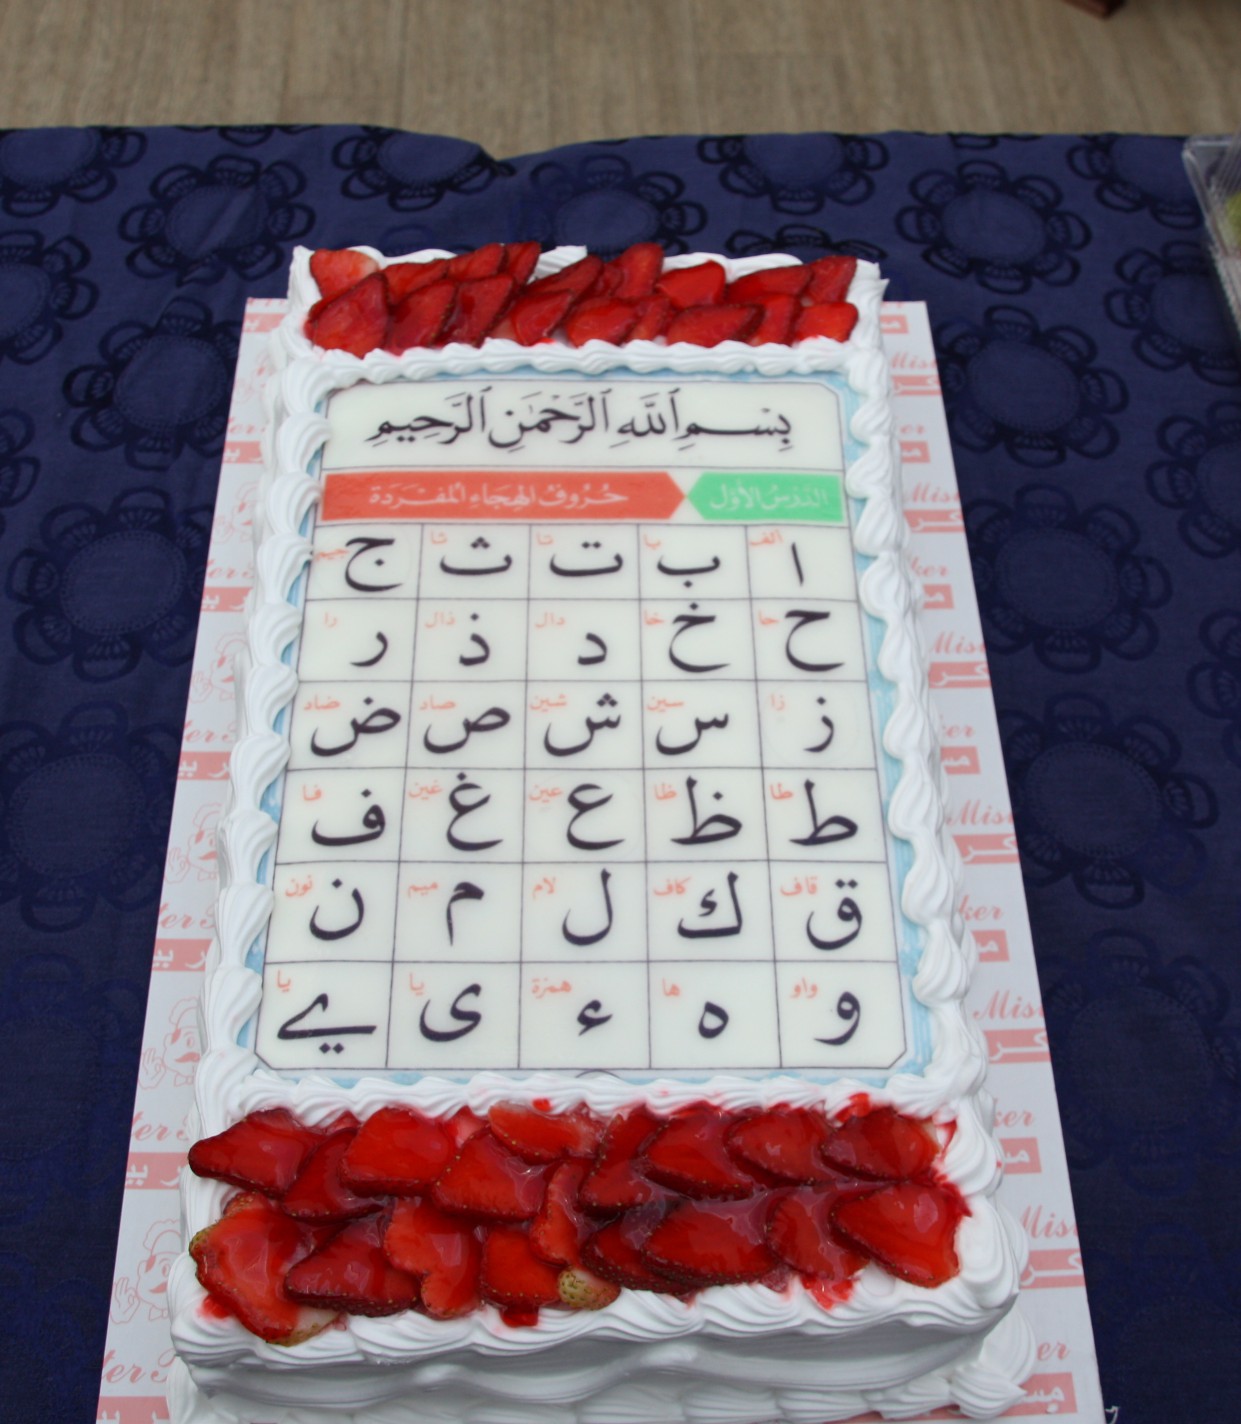 بِسْمِ ٱللَّهِ ٱلرَّحْمَٰنِ ٱلرَّحِيمِ
الدَّرْسُ الأَوَّل حُرُوفُ الهِجَاءِ المُفْرَدَة
ا ألف ب با ت تا ث ثا ج جيم
ح حا خ خا د دال ذ ذال ر را
ز زا س سين ش شين ص صاد ض ضاد
ط طا ظ ظا ع عين غ غين ف فا
ق قاف ك كاف ل لام م ميم ن نون
و واو ه ها ء همزة ى يا ے يا